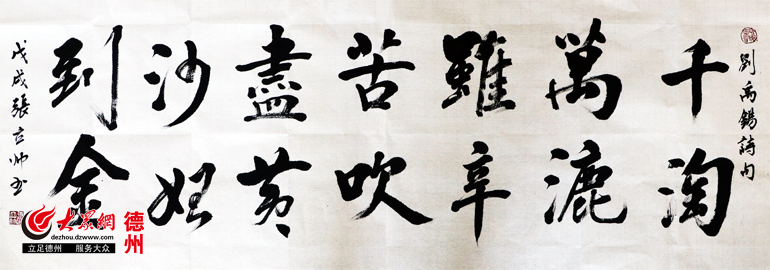 劉禹錫詩句
千淘
萬漉
雖辛
苦吹
盡黄
沙始
到金
戊戌張立帅书
大眾網
德州
dezhou.dzwww.com
立足德州 服务大众